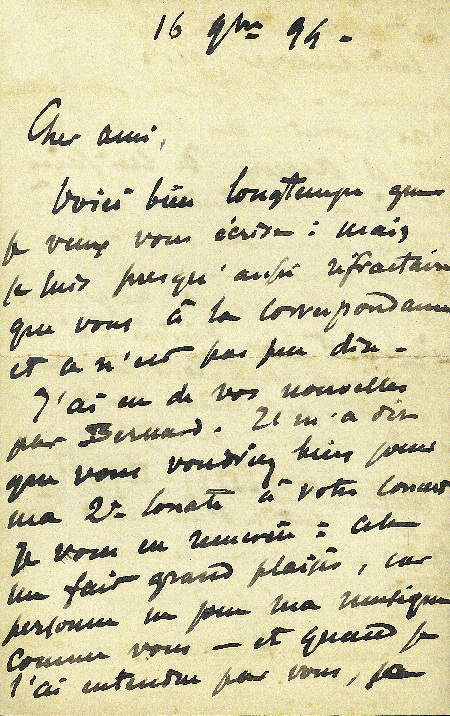 16 9bre 94 -
Cher ami,
Voici bien longtemps que
je veux vous écrire : mais
je suis presqu'aussi réfractaire
que vous à la correspondance
et ce n'est pas peu dire -
J'ai eu de vos nouvelles
par Bernard. Il m'a dit
que vous voudriez bien jouer
ma 2e Sonate à votre concert
Je vous en remercie : cela
me fait grand plaisir, car
personne ne joue ma musique
comme vous - et quand je
l'ai entendue par vous, je